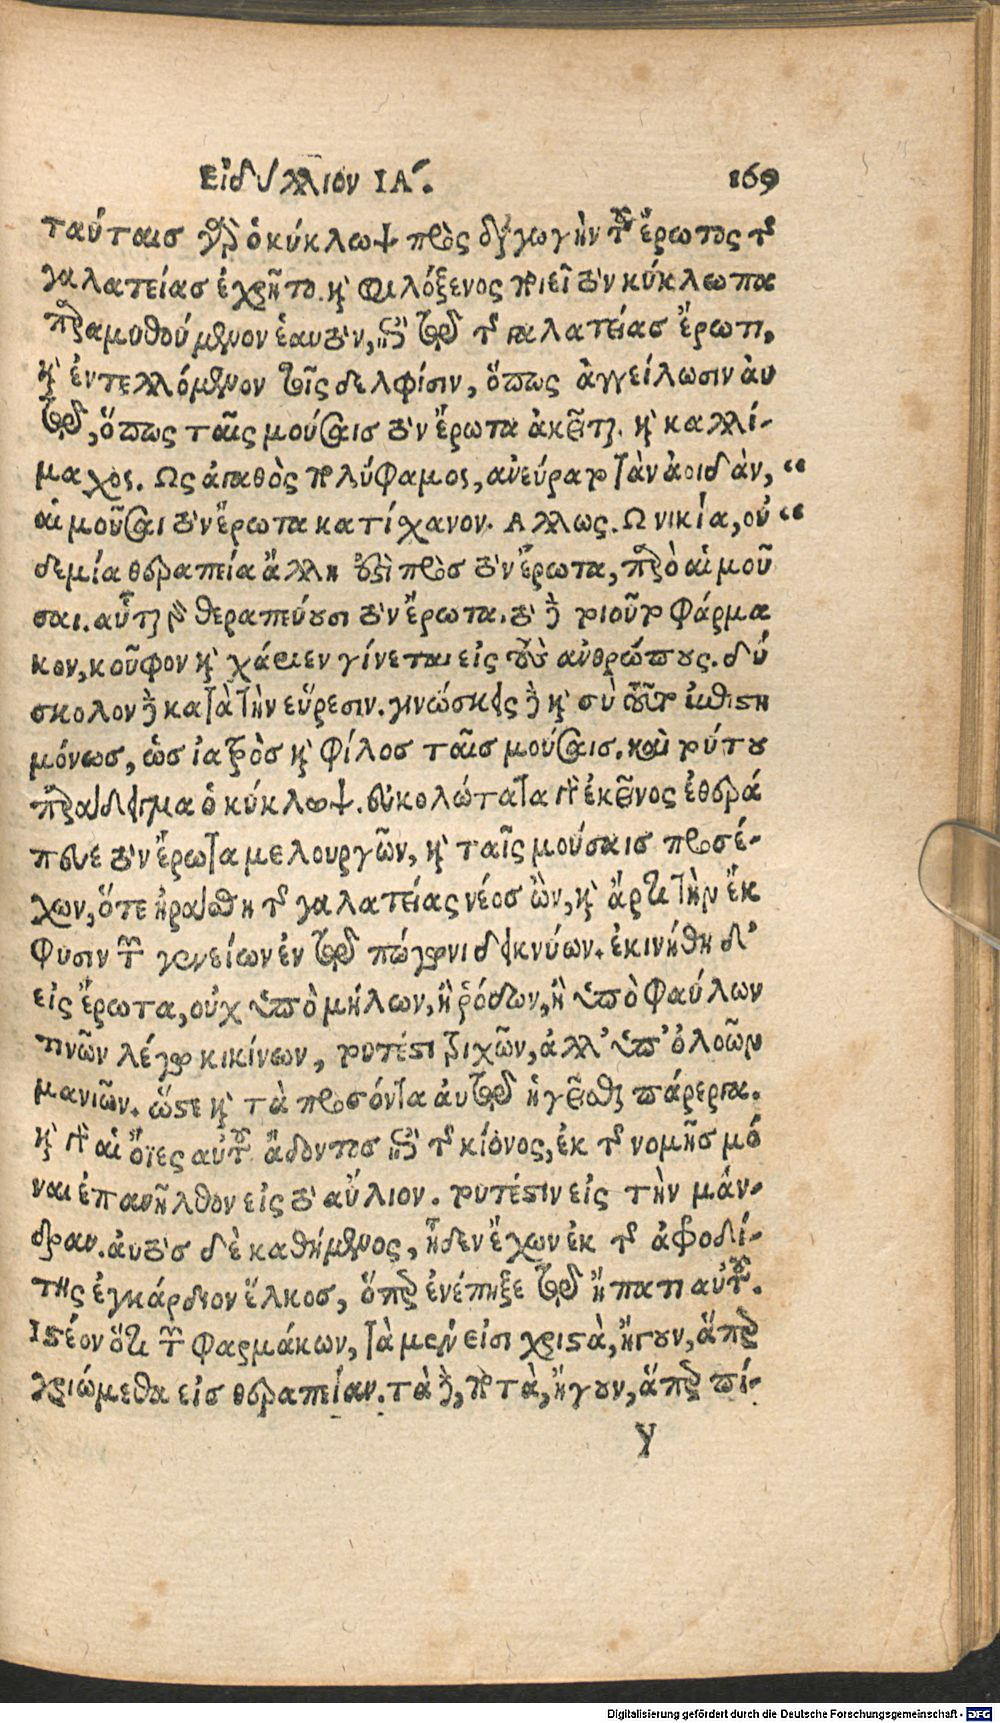 Εἰδύλλιον ΙΑ΄. 169
ταύταισ γὰρ ὁ κύκλωψ πρὸς διαγωγὴν τοῦ ἔρωτος τῆς
γαλατείασ ἐχρῆτο. καὶ φιλόξενος ποιεῖ τὸν κύκλωπα
παραμυθούμενον ἑαυτὸν, ἐπὶ τῷ τῆς γαλατείασ ἔρωτι,
καὶ ἐντελλόμενον τοῖς δελφίσιν, ὅπως ἀγγείλωσιν αὐ
τῷ, ὅπως ταῖς μούσαισ τὸν ἔρωτα ἀκεῖται. καὶ καλλί-
μαχος. Ως ἀγαθὸς πολύφαμος, ἀνεύρατο τὰν ἀοιδὰν, “
αἱ μοῦσαι τὸν ἔρωτα κατίχανον. Αλλως. Ω νικία, οὐ “
δεμία θεραπεία ἄλλη ἐστὶ πρὸσ τὸν ἔρωτα, παρὸ αἱ μοῦ
σαι. αὗται γὰρ θεραπεύουσι τὸν ἔρωτα. τὸ δὲ τοιοῦτο φάρμα
κον, κοῦφον καὶ χάριεν γίνεται εἰς τοὺς ἀνθρώπους. δύ
σκολον δὲ κατὰ τὴν εὕρεσιν. γινώσκεις δὲ καὶ σὺ τοῦτο
μόνωσ, ὡσ ἰατρὸσ καὶ φίλοσ ταῖσ μούσαισ. καὶ τούτου
παράδειγμα ὁ κύκλωψ. εὐκολώτατα γὰρ ἐκεῖνος ἐθερά
πευε τὸν ἔρωτα μελουργῶν, καὶ ταῖς μούσαισ προσέ-
χων, ὅτε ἠράσθη τῆς γαλατείας νέοσ ὢν, καὶ ἄρτι τὴν ἔκ
φυσιν τῶν γενείων ἐν τῷ πώγωνι δεικνύων. ἐκινήθη δ’
εἰς ἔρωτα, οὐχ ὑπὸ μήλων, ἢ ῥόδων, ἢ ὑπὸ φαύλων
τινῶν λέγω κικίνεων, τουτέστι τριχῶν, ἀλλ’ ὑπ’ ὀλοῶν
μανιῶν. ὥστε καὶ τὰ προσόντα αὐτῷ ἡγεῖσθαι πάρεργα.
καὶ γὰρ αἱ ὄϊες αὐτοῦ ᾄδοντοσ ἐπὶ τῆς κίονος, ἐκ τῆς νομῆσ μό
ναι ἐπανῆλθον εἰς τὸ αὔλιον. τουτέστιν εἰς τὴν μάν-
δραν. αὐτὸσ δὲ καθήμενος, ᾖδεν ἔχων ἐκ τῆς ἀφροδί-
της ἐγκάρδιον ἕλκοσ, ὅπερ ἐνέπηξε τῷ ἥπατι αὐτοῦ.
Ιστέον ὅτι τῶν φαρμάκων, τὰ μέν εἰσι χριστὰ, ἤγουν, ἅπερ
χριώμεθα εἰσ θεραπείαν. τὰ δὲ, ποτὰ, ἤγουν, ἅπερ πί-
Y
Digitalisierung gefördert durch die Deutsche Forschungsgemeinschaft - DFG